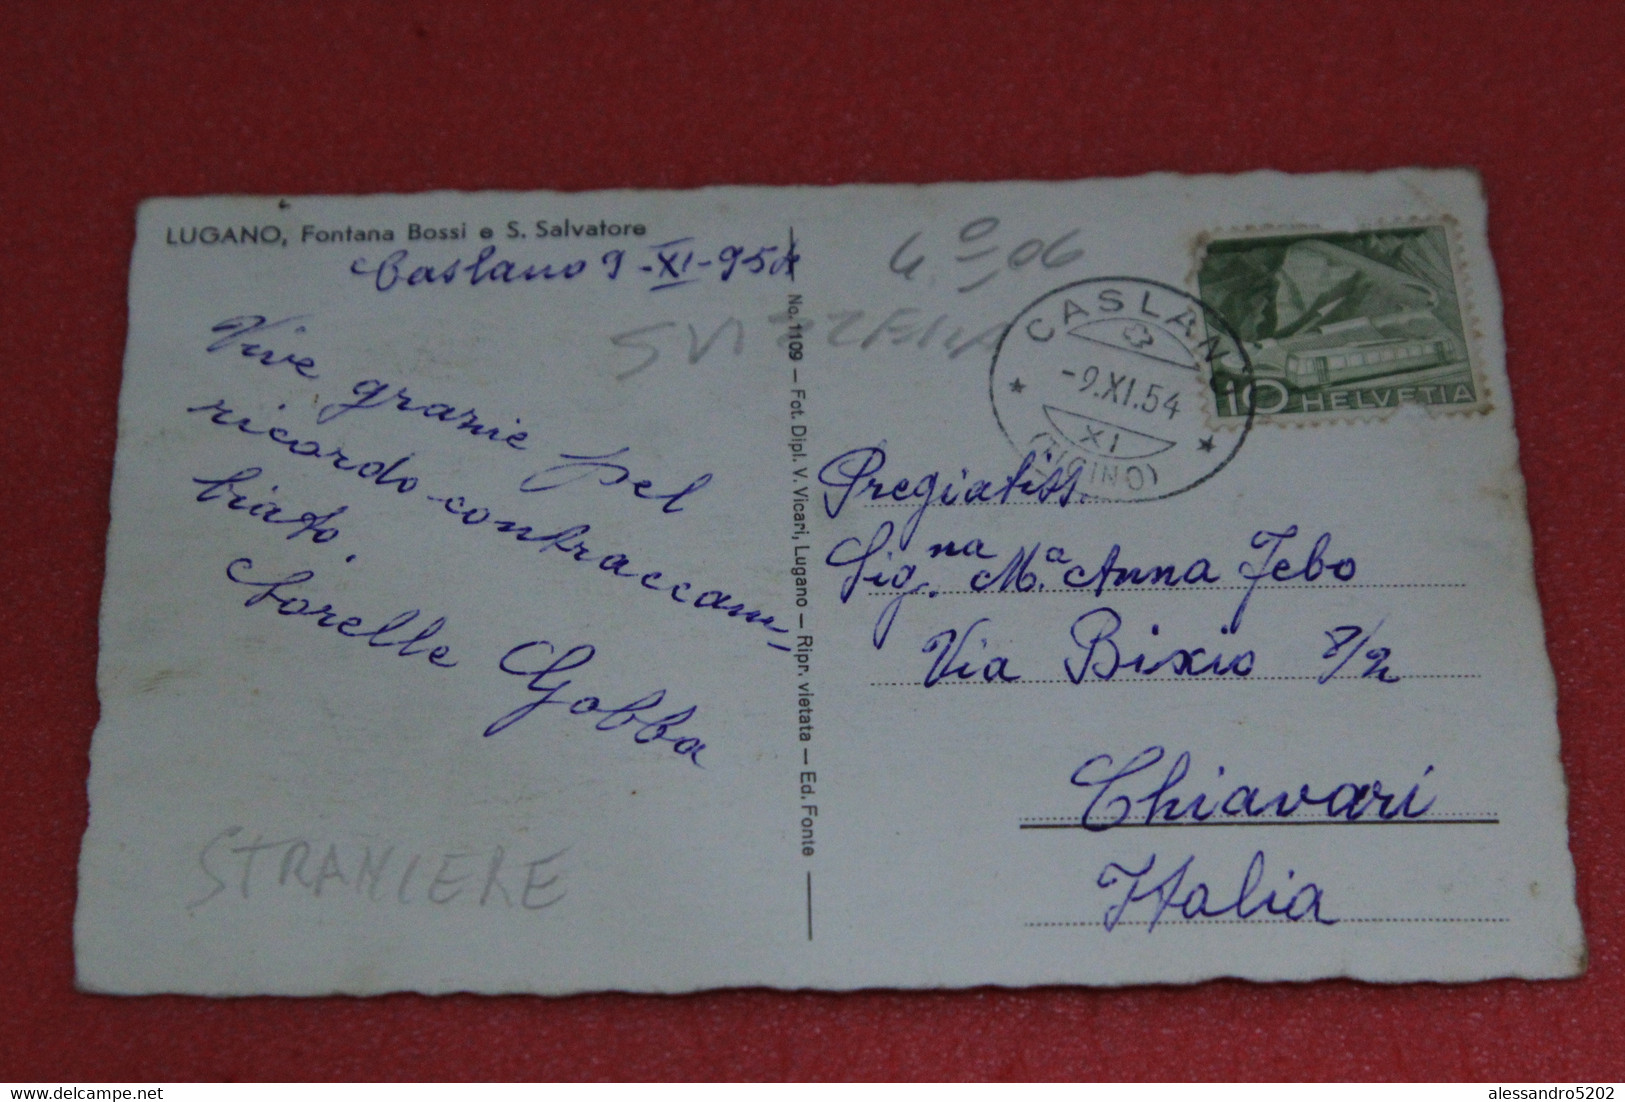 LUGANO, Fontana Bossi e S. Salvatore
Caslano 9-XI-954
Vive grazie pel
ricordo contraccam,
biato.
Sorelle Gobba
STRANIERE
No. 1109 — Fot. Dipl. V. Vicari, Lugano — Ripr. vietata — Ed. Fonte
SVIZZERA
CASLANO
-9.XI.54
XI
(TICINO)
10 HELVETIA
Pregiatiss.
Sig.na M.a Anna Tebo
Via Bixio 8/2
Chiavari
Italia
delcampe.net
alessandro5202